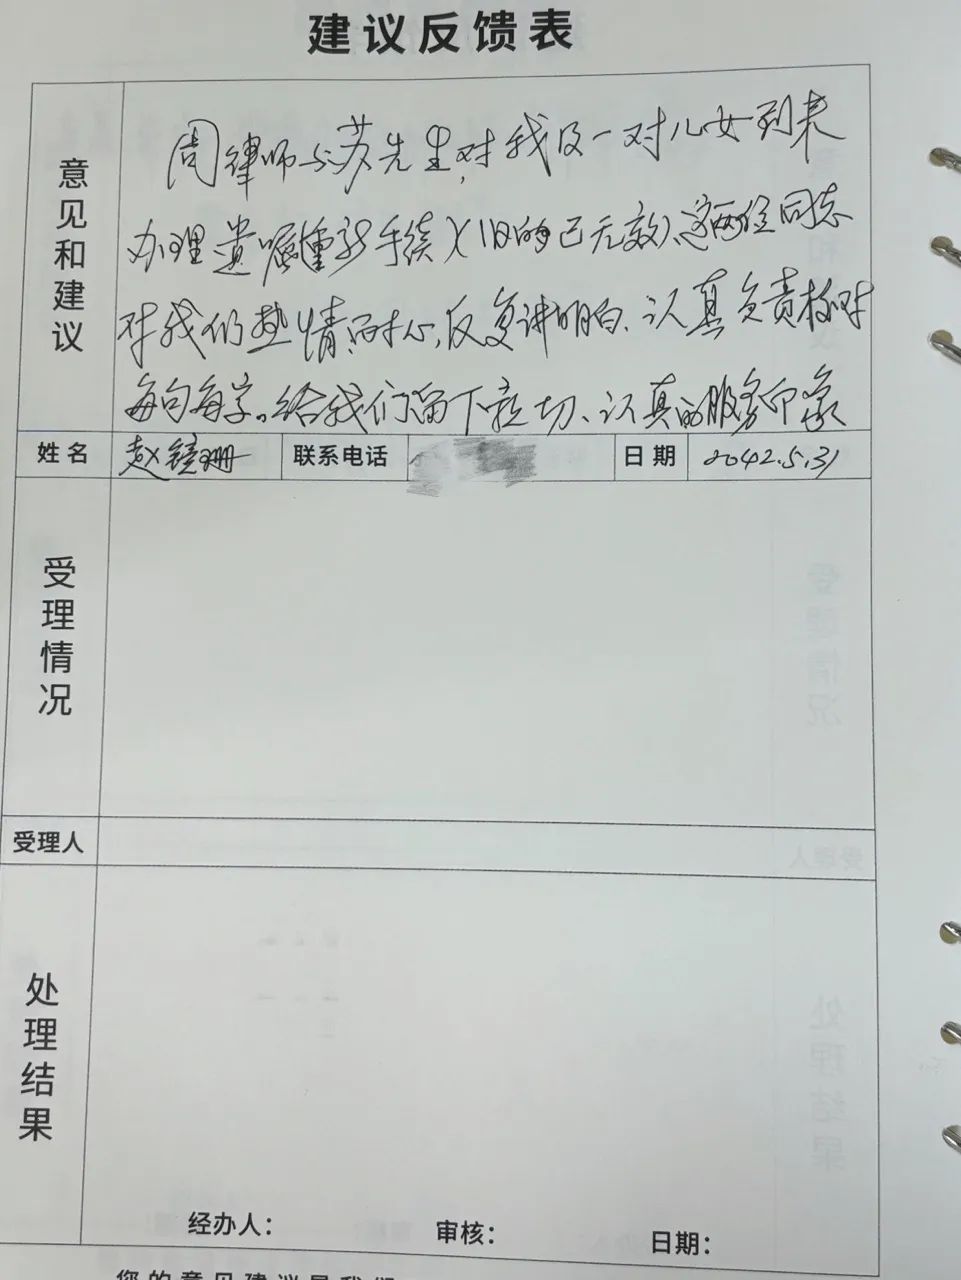 建议反馈表
意见和建议
周律师与苏先生,对我及一对儿女到来
办理遗嘱重新手续(旧的已无效)、这两位同志
对我们热情、耐心,反复讲明白、认真负责核对
每句每字。给我们留下亲切、认真的服务印象
姓名 赵镜珊 联系电话 日期 2042.5.31
受理情况
受理人
处理结果
经办人: 审核: 日期:
您的意见建议是我们